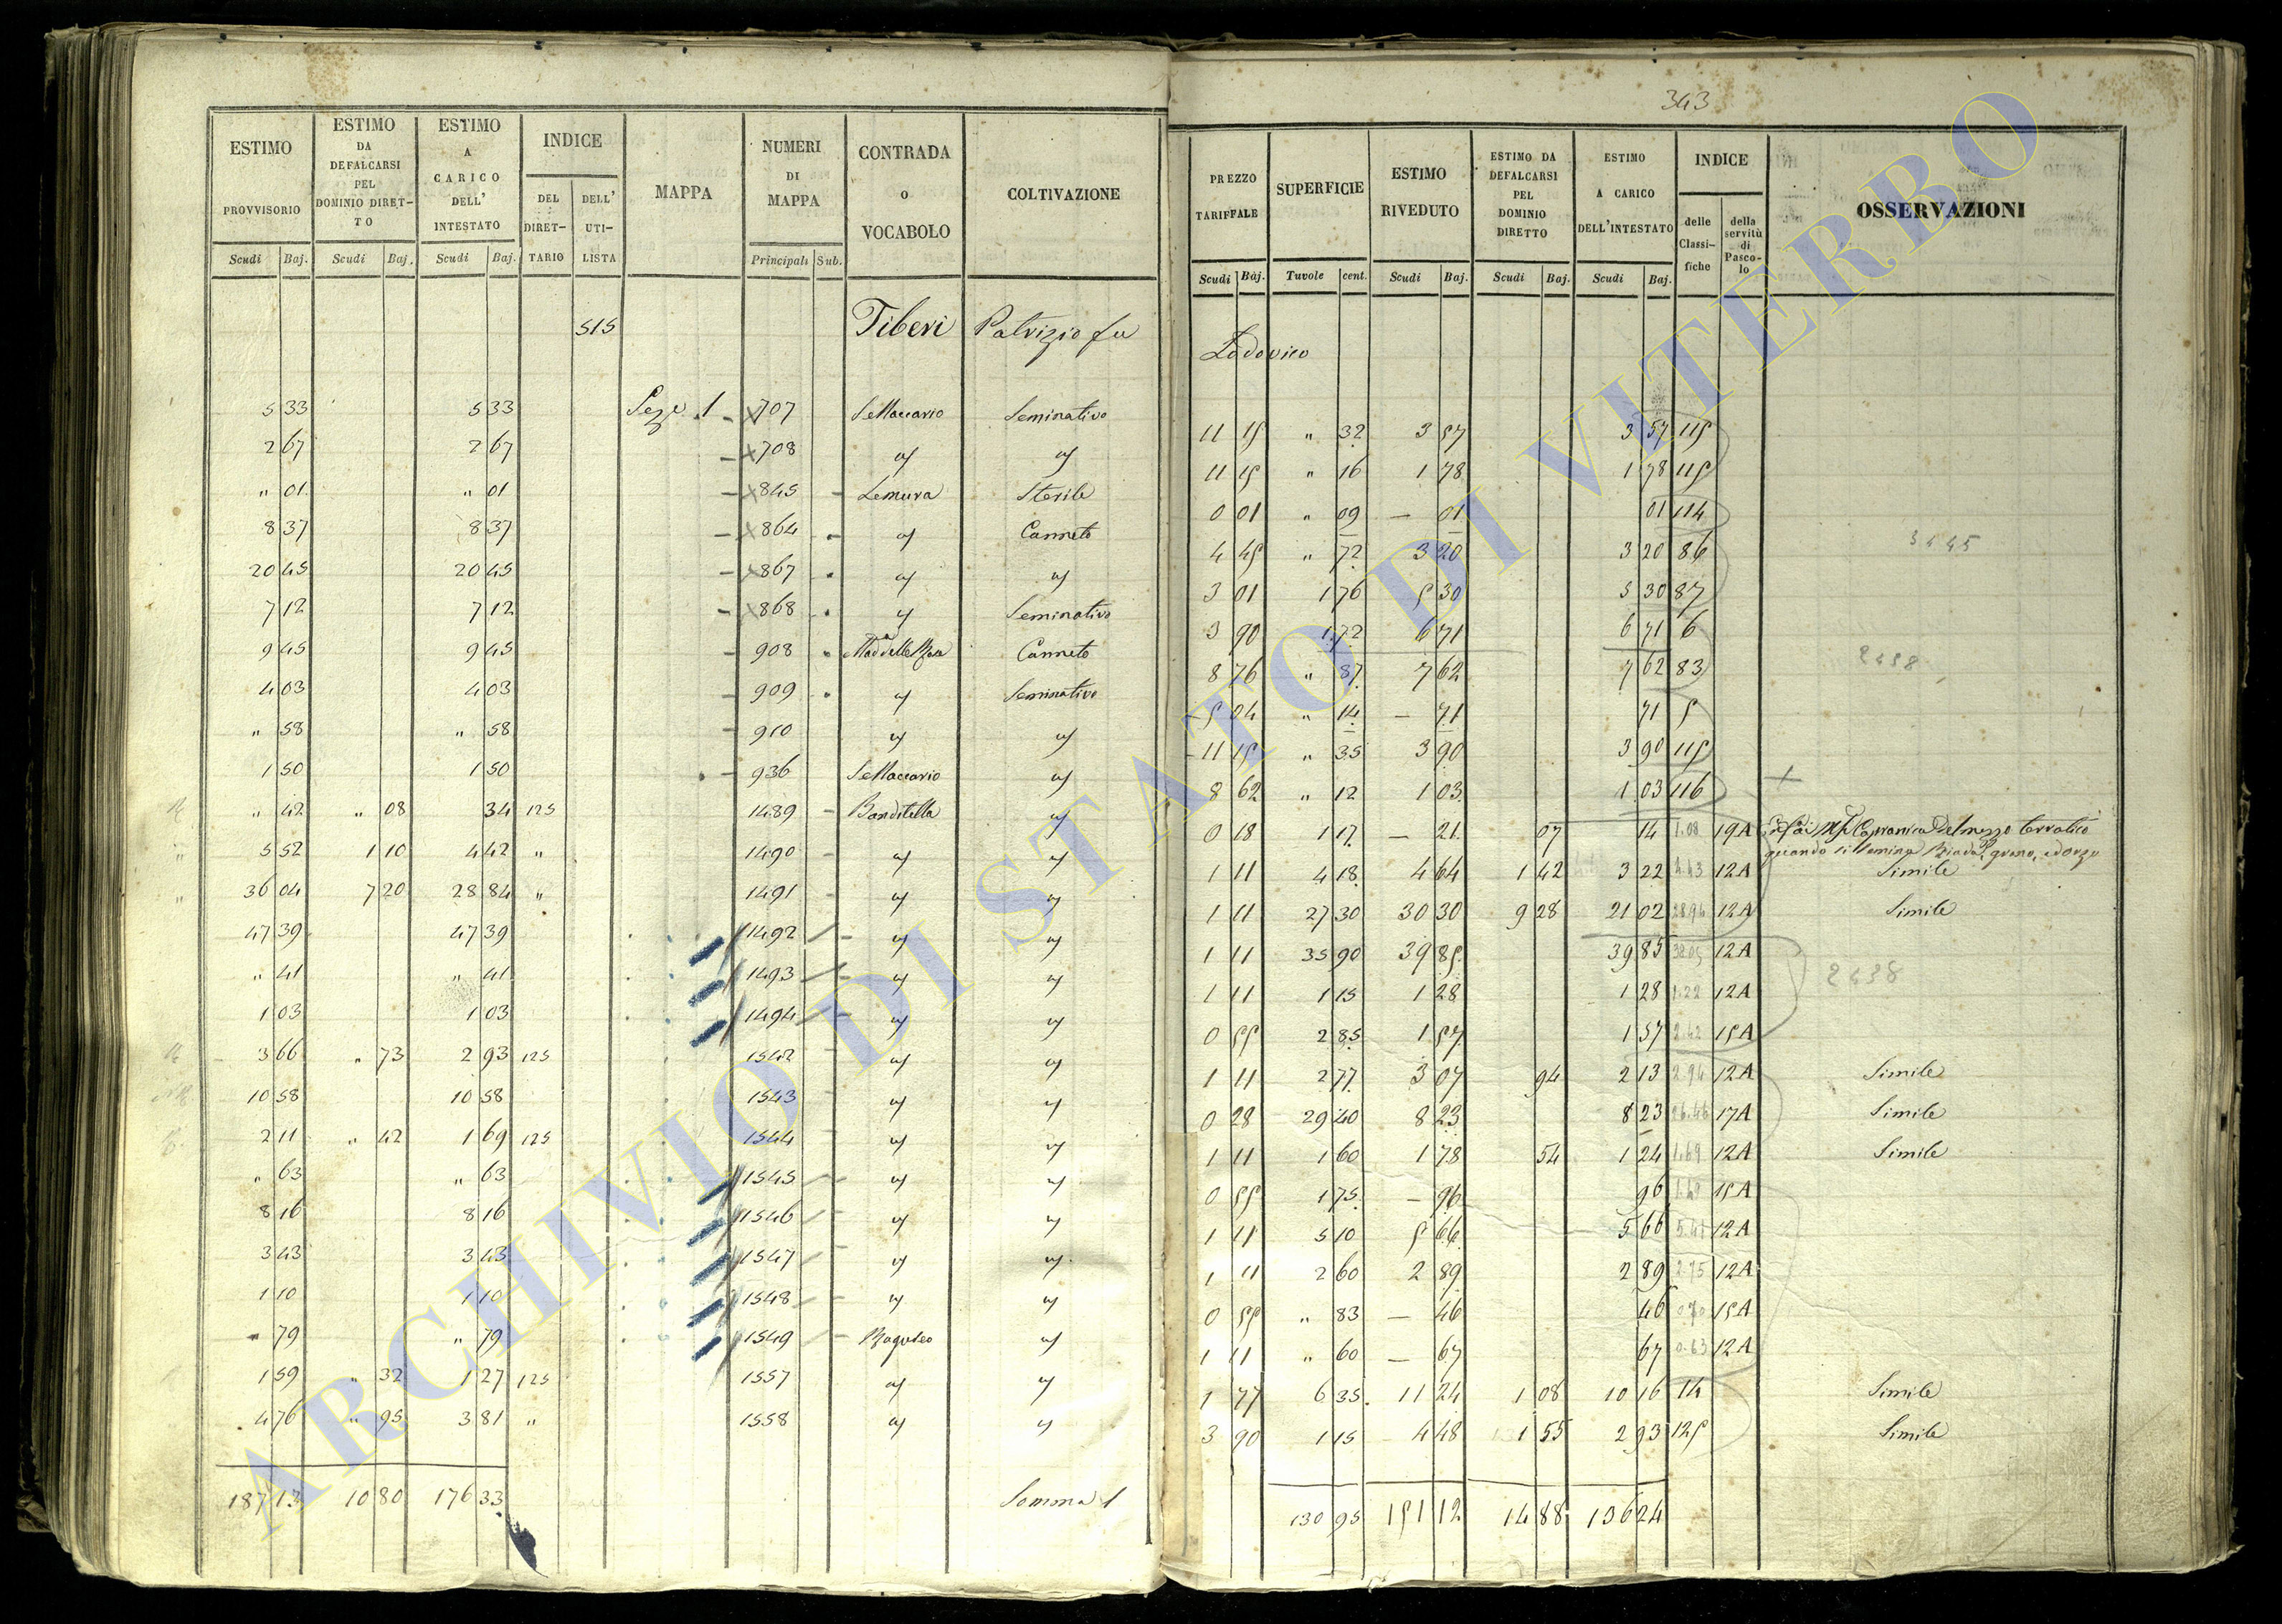 343
ESTIMO PROVVISORIO Scudi Baj.
ESTIMO DA DEFALCARSI PEL DOMINIO DIRET-TO Scudi Baj.
ESTIMO A CARICO DELL' INTESTATO Scudi Baj.
INDICE DEL DIRET-TARIO DELL' UTI-LISTA
MAPPA
NUMERI DI MAPPA Principali Sub.
CONTRADA o VOCABOLO
COLTIVAZIONE
PREZZO TARIFFALE Scudi Baj.
SUPERFICIE Tavole cent.
ESTIMO RIVEDUTO Scudi Baj.
ESTIMO DA DEFALCARSI PEL DOMINIO DIRETTO Scudi Baj.
ESTIMO A CARICO DELL'INTESTATO Scudi Baj.
INDICE delle Classi-fiche della servitù di Pasco-lo
OSSERVAZIONI
515 Tiberi Patrizio fu Lodovico
5 33 5 33 Sez. 1 707 Seminativo 11 15 " 32 3 57 3 57 115
2 67 2 67 708 " " 11 15 " 16 1 78 1 78 115
" 01 " 01 845 Lemura Sterile 0 01 " 09 — 01 01 114
8 37 8 37 864 " Canneto 4 45 " 72 3 20 3 20 86
3445
20 45 20 45 867 " " 3 01 1 76 5 30 5 30 87
7 12 7 12 868 " Seminativo 3 90 1 72 6 71 6 71 6
9 45 9 45 908 Canneto 8 76 " 87 7 62 7 62 83
2438
4 03 4 03 909 " Seminativo 5 04 " 14 — 71 71 5
" 58 " 58 910 " " 11 15 " 35 3 90 3 90 115
1 50 1 50 936 " 8 62 " 12 1 03 1 03 116
" 42 " 08 34 125 1489 Banditella " 0 18 1 17 — 21 07 14 1.08 19A
quando si semina Biada, grano, ed orzo
5 52 1 10 4 42 " 1490 " " 1 11 4 18 4 64 1 42 3 22 12A Simile
36 04 7 20 28 84 " 1491 " " 1 11 27 30 30 30 9 28 21 02 12A Simile
47 39 47 39 1492 " " 1 11 35 90 39 85 39 85 12A
" 41 " 41 1493 " " 1 11 1 15 1 28 1 28 1.22 12A
2438
1 03 1 03 1494 " " 0 55 2 85 1 57 1 57 2.42 15A
3 66 " 73 2 93 125 1542 " " 1 11 2 77 3 07 94 2 13 2.94 12A Simile
10 58 10 58 1543 " " 0 28 29 40 8 23 8 23 26.46 17A Simile
2 11 " 42 1 69 125 1544 " " 1 11 1 60 1 78 54 1 24 1.69 12A Simile
" 63 " 63 1545 " " 0 55 1 75 — 96 96 15A
8 16 8 16 1546 " " 1 11 5 10 5 66 5 66 12A
3 43 3 43 1547 " " 1 11 2 60 2 89 2 89 2.75 12A
1 10 1 10 1548 " " 0 55 " 83 — 46 46 0.70 15A
" 79 " 79 1549 " 1 11 " 60 — 67 67 0.63 12A
1 59 " 32 1 27 125 1557 " " 1 77 6 35 11 24 1 08 10 16 14 Simile
4 76 " 95 3 81 " 1558 " " 3 90 1 15 4 48 1 55 2 93 125 Simile
187 13 10 80 176 33 Somma 1 130 95 151 12 14 88 136 24
ARCHIVIO DI STATO DI VITERBO